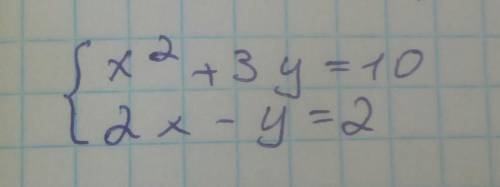 x² + 3y = 10
2x - y = 2